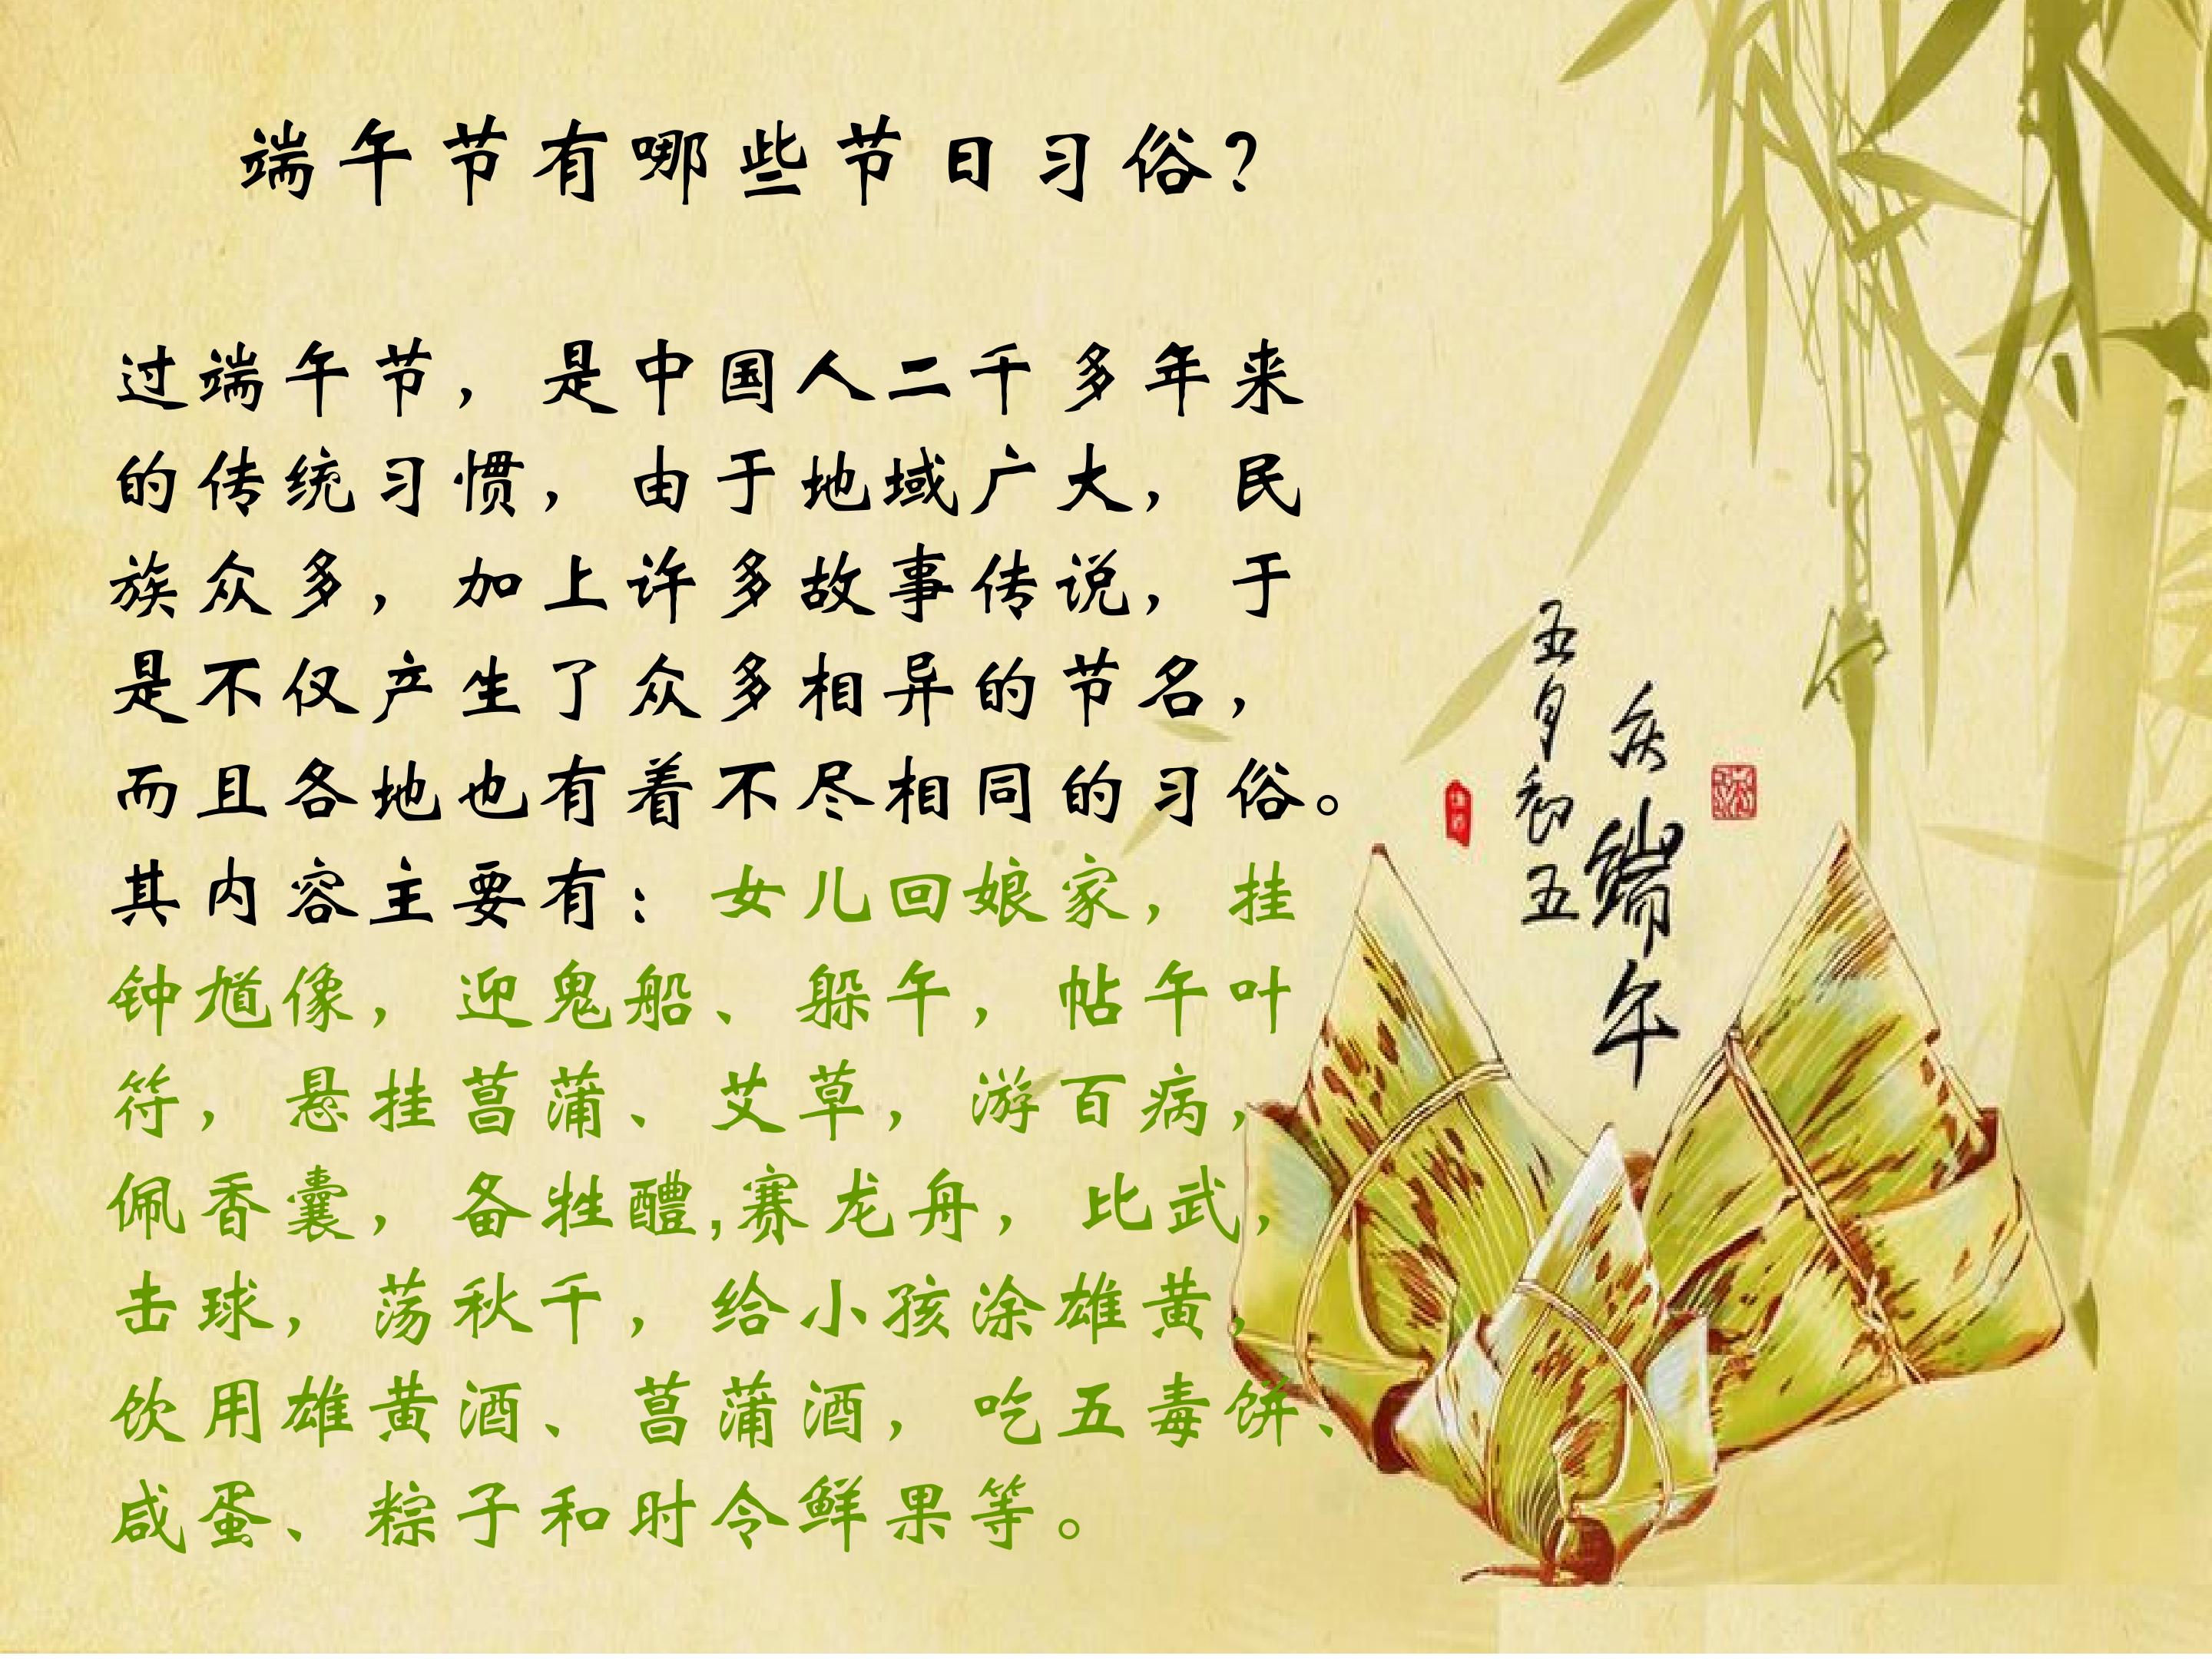 端午节有哪些节日习俗？
过端午节，是中国人二千多年来
的传统习惯，由于地域广大，民
族众多，加上许多故事传说，于
是不仅产生了众多相异的节名，
而且各地也有着不尽相同的习俗。
其内容主要有：女儿回娘家，挂
钟馗像，迎鬼船、躲午，帖午叶
符，悬挂菖蒲、艾草，游百病，
佩香囊，备牲醴,赛龙舟，比武，
击球，荡秋千，给小孩涂雄黄，
饮用雄黄酒、菖蒲酒，吃五毒饼、
咸蛋、粽子和时令鲜果等。
庆端午
五月初五